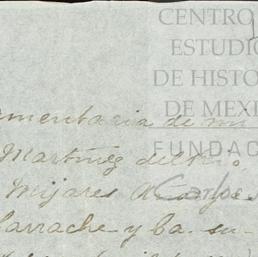 CENTRO
ESTUDIO
DE HISTO
DE MEXI
FUNDAC
Carlos
mentaria de mi
Martinez del Rio,
Mijares
arrache y Ca. su-